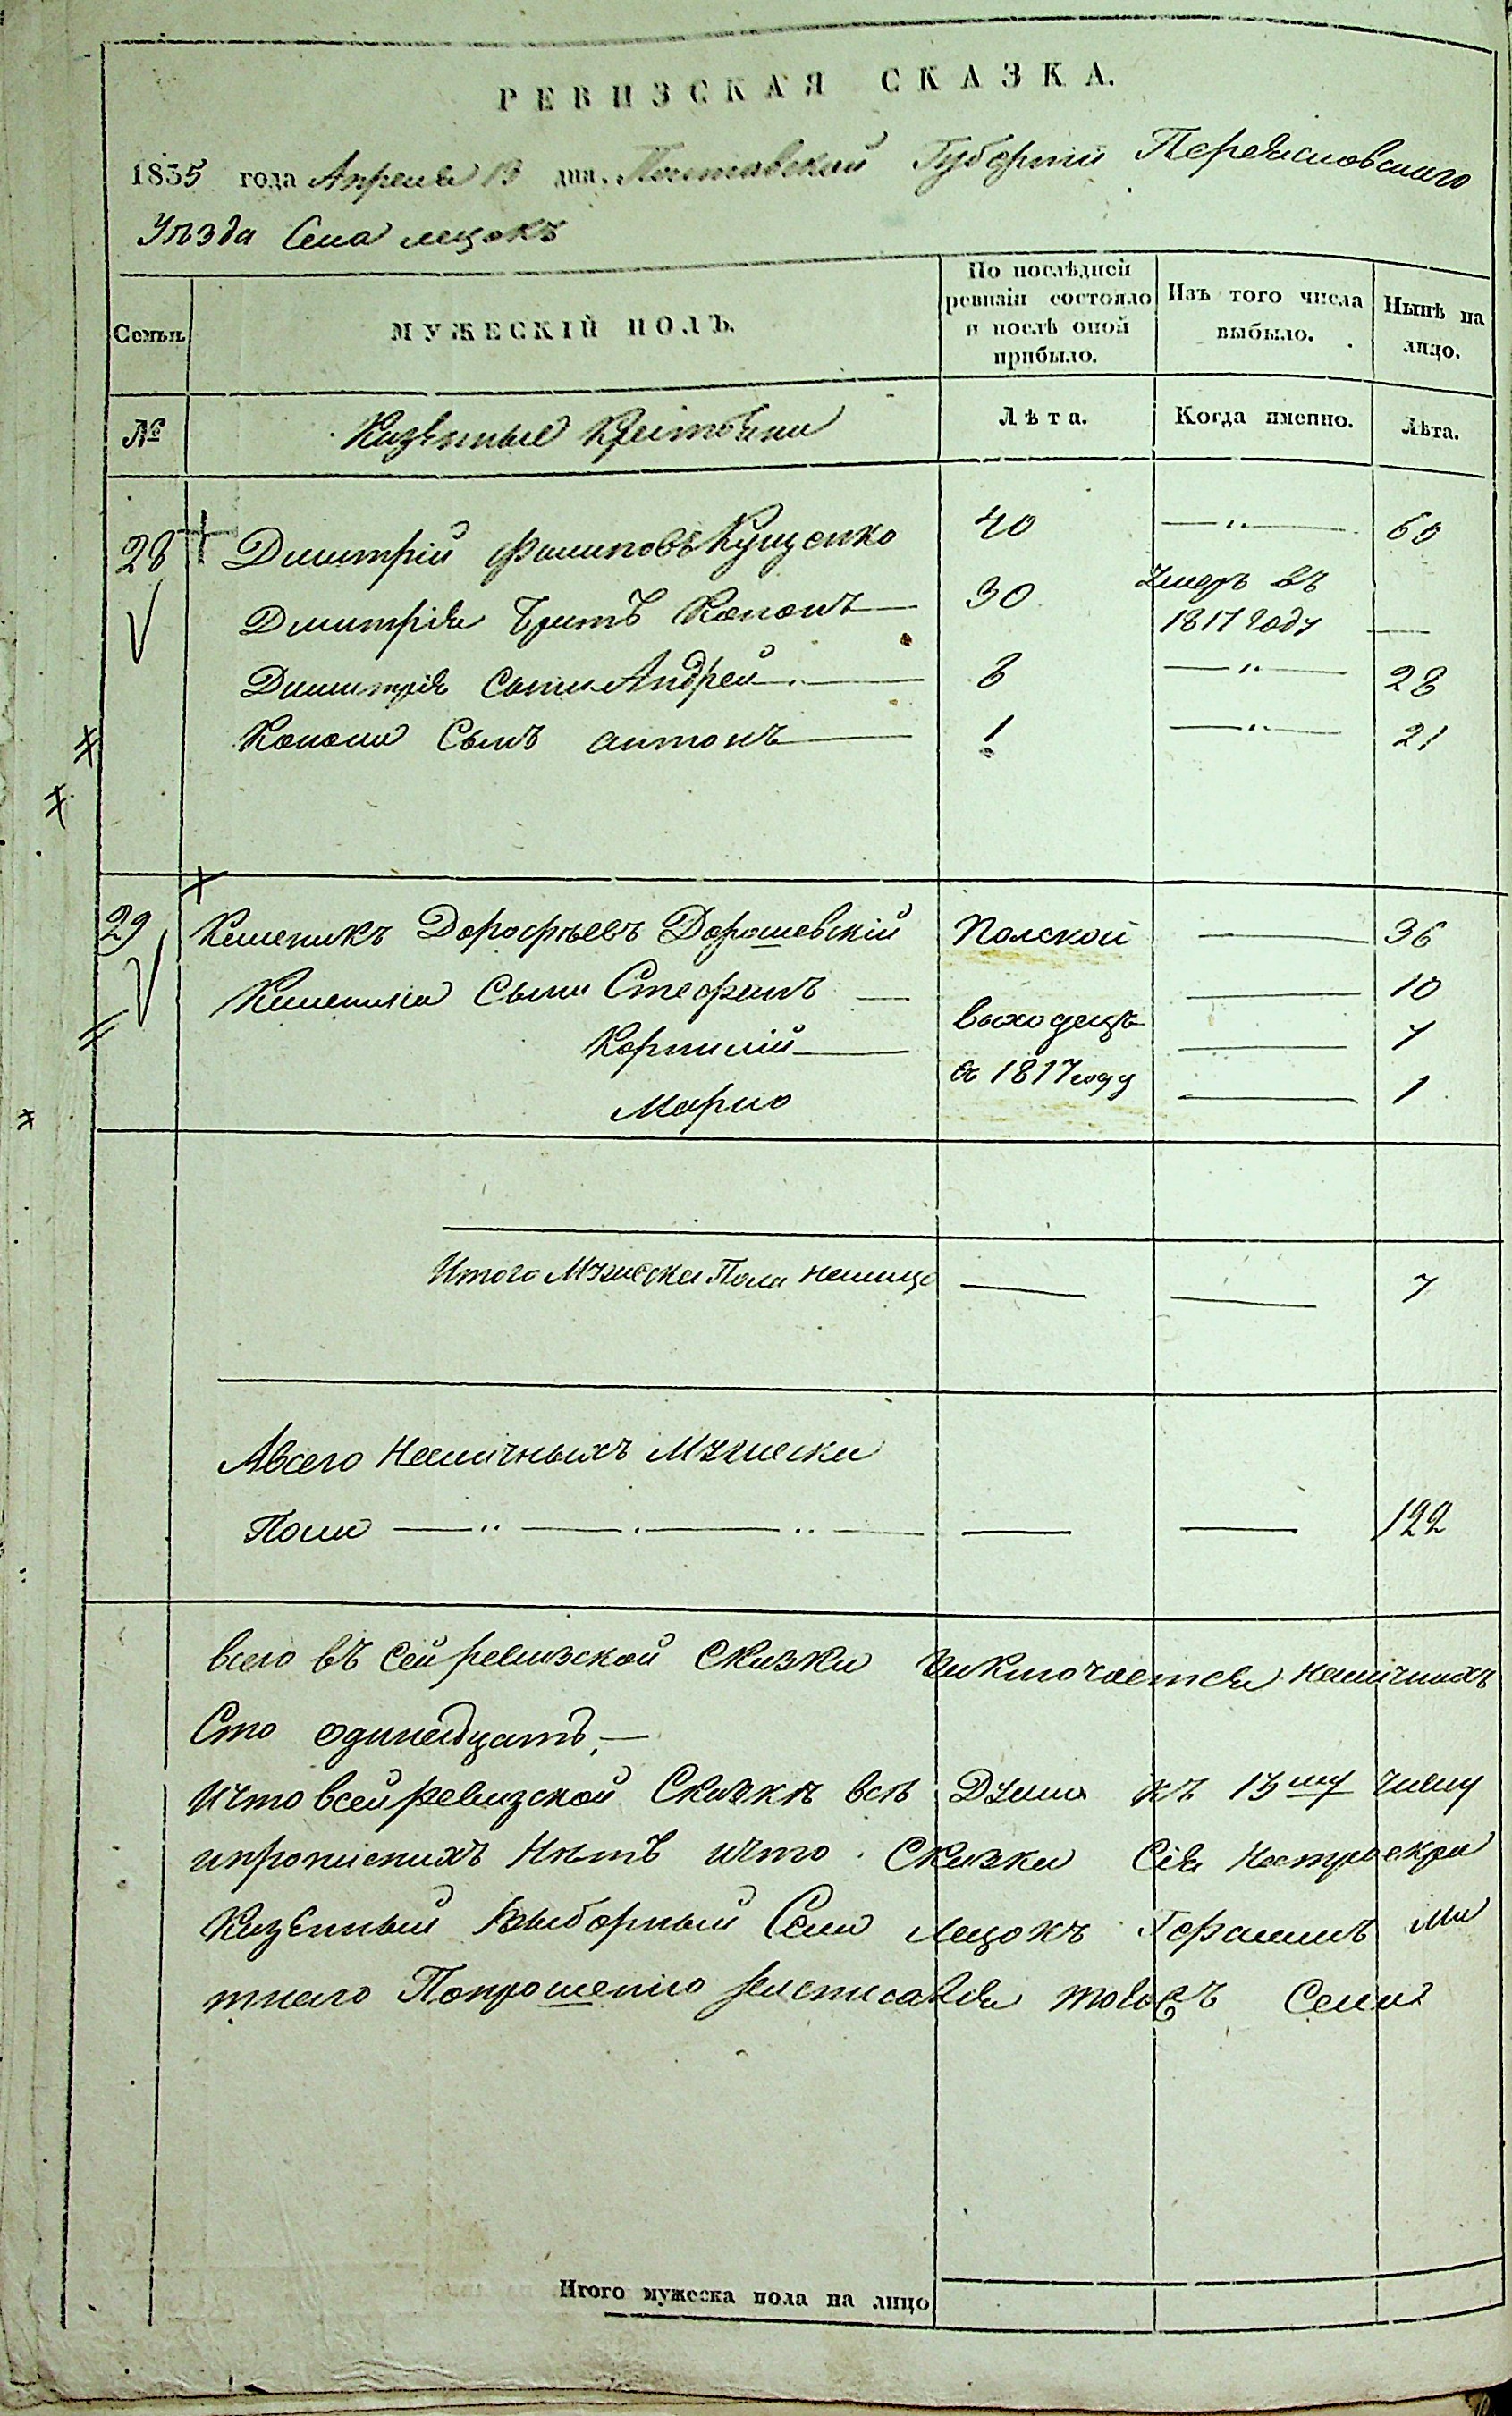 РЕВИЗСКАЯ СКАЗКА.
1835 года Апреля 13 дня. Полтавской Губернии Переясловскаго
Уѣзда Села лецокъ
Семьи.
МУЖЕСКІЙ ПОЛЪ.
По послѣдней ревизіи состояло и послѣ оной прибыло.
Изъ того числа выбыло.
Нынѣ на лицо.
№
Казенные Крестьяни
Лѣта.
Когда именно.
Лѣта.
28 Димитрій Филиповъ Куценко 40 60
Димитрія братъ Кононъ 30 Умеръ въ 1817 году
Димитрія сынъ Андрей 8 28
Конона Сынъ антонъ 1 21
29 Дорофѣевъ Дорошевскій Полской 36
Сыны Стефанъ выходецъ 10
Корнилій съ 1817 году 7
Марко 1
Итого Мужеска Пола налицо 7
Авсего Наличныхъ Мужеска
Пола 122
всего въ сей ревизской Сказки заключается наличныхъ
Сто одинадцать
Ичто всей ревизской Сказкѣ всѣ Души къ 13му числу
ипрописныхъ Нѣтъ ичто Сказки Сія
Казенный Выборный Села Лецокъ Герасимъ
Попрошенію росписался тогожъ Села
Итого мужеска пола на лицо